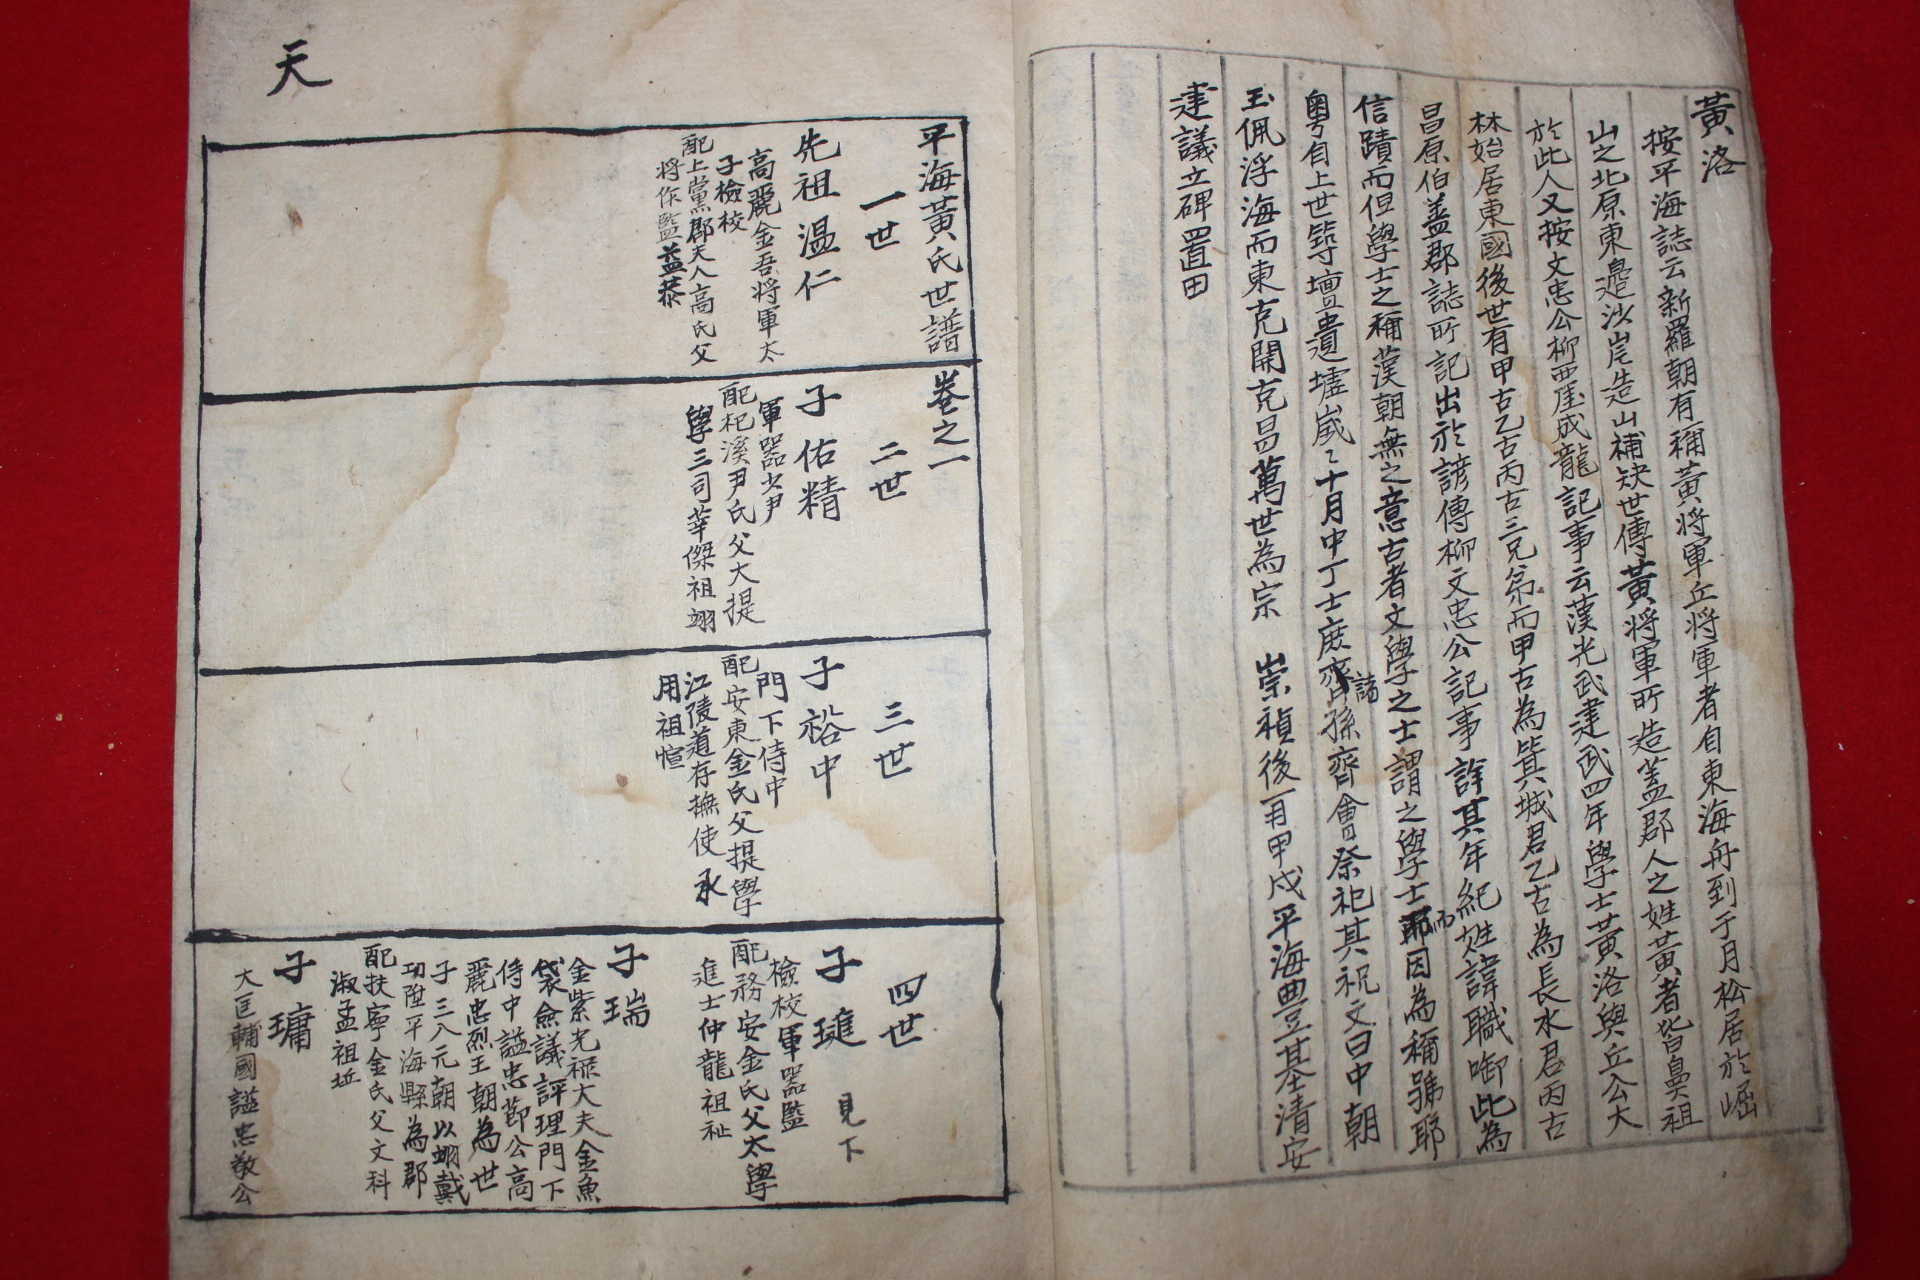 黃洛
按平海誌云新羅朝有稱黃將軍丘將軍者自東海舟到于月松居於崛
山之北原東邊沙岸造山補缺世傳黃將軍所造盖郡人之姓黃者皆鼻祖
於此人又按文忠公柳西厓成龍記事云漢光武建武四年學士黃洛與丘公大
林始居東國後世有甲古乙古丙古三兄弟而甲古為箕城君乙古為長水君丙古
昌原伯盖郡誌所記出於諺傳柳文忠公記事詳其年紀姓諱職啣此為
信蹟而但學士之稱漢朝無之意古者文學之士謂之學士而因為稱號耶
粤自上世築壇遺墟歲〻十月中丁士庶諸孫齊會祭祀其祝文曰中朝
玉佩浮海而東克開克昌萬世為宗 崇禎後一百甲戌平海豊基清安
建議立碑置田
天
平海黃氏世譜 卷之一
一世
先祖溫仁
高麗金吾將軍太
子檢校
配上黨郡夫人高氏父
將作監益恭
二世
子佑精
軍器少尹
配杞溪尹氏父大提
學三司莘傑祖翊
三世
子裕中
門下侍中
配安東金氏父提學
江陵道存撫使承
用祖愃
四世
子璡 見下
檢校軍器監
配務安金氏父太學
進士仲龍祖祉
子瑞
金紫光祿大夫金魚
袋僉議評理門下
侍中謚忠節公高
麗忠烈王朝為世
子三入元朝以翊戴
功陞平海縣為郡
配扶寧金氏父文科
淑孟祖坵
子璛
大匡輔國謚忠敬公